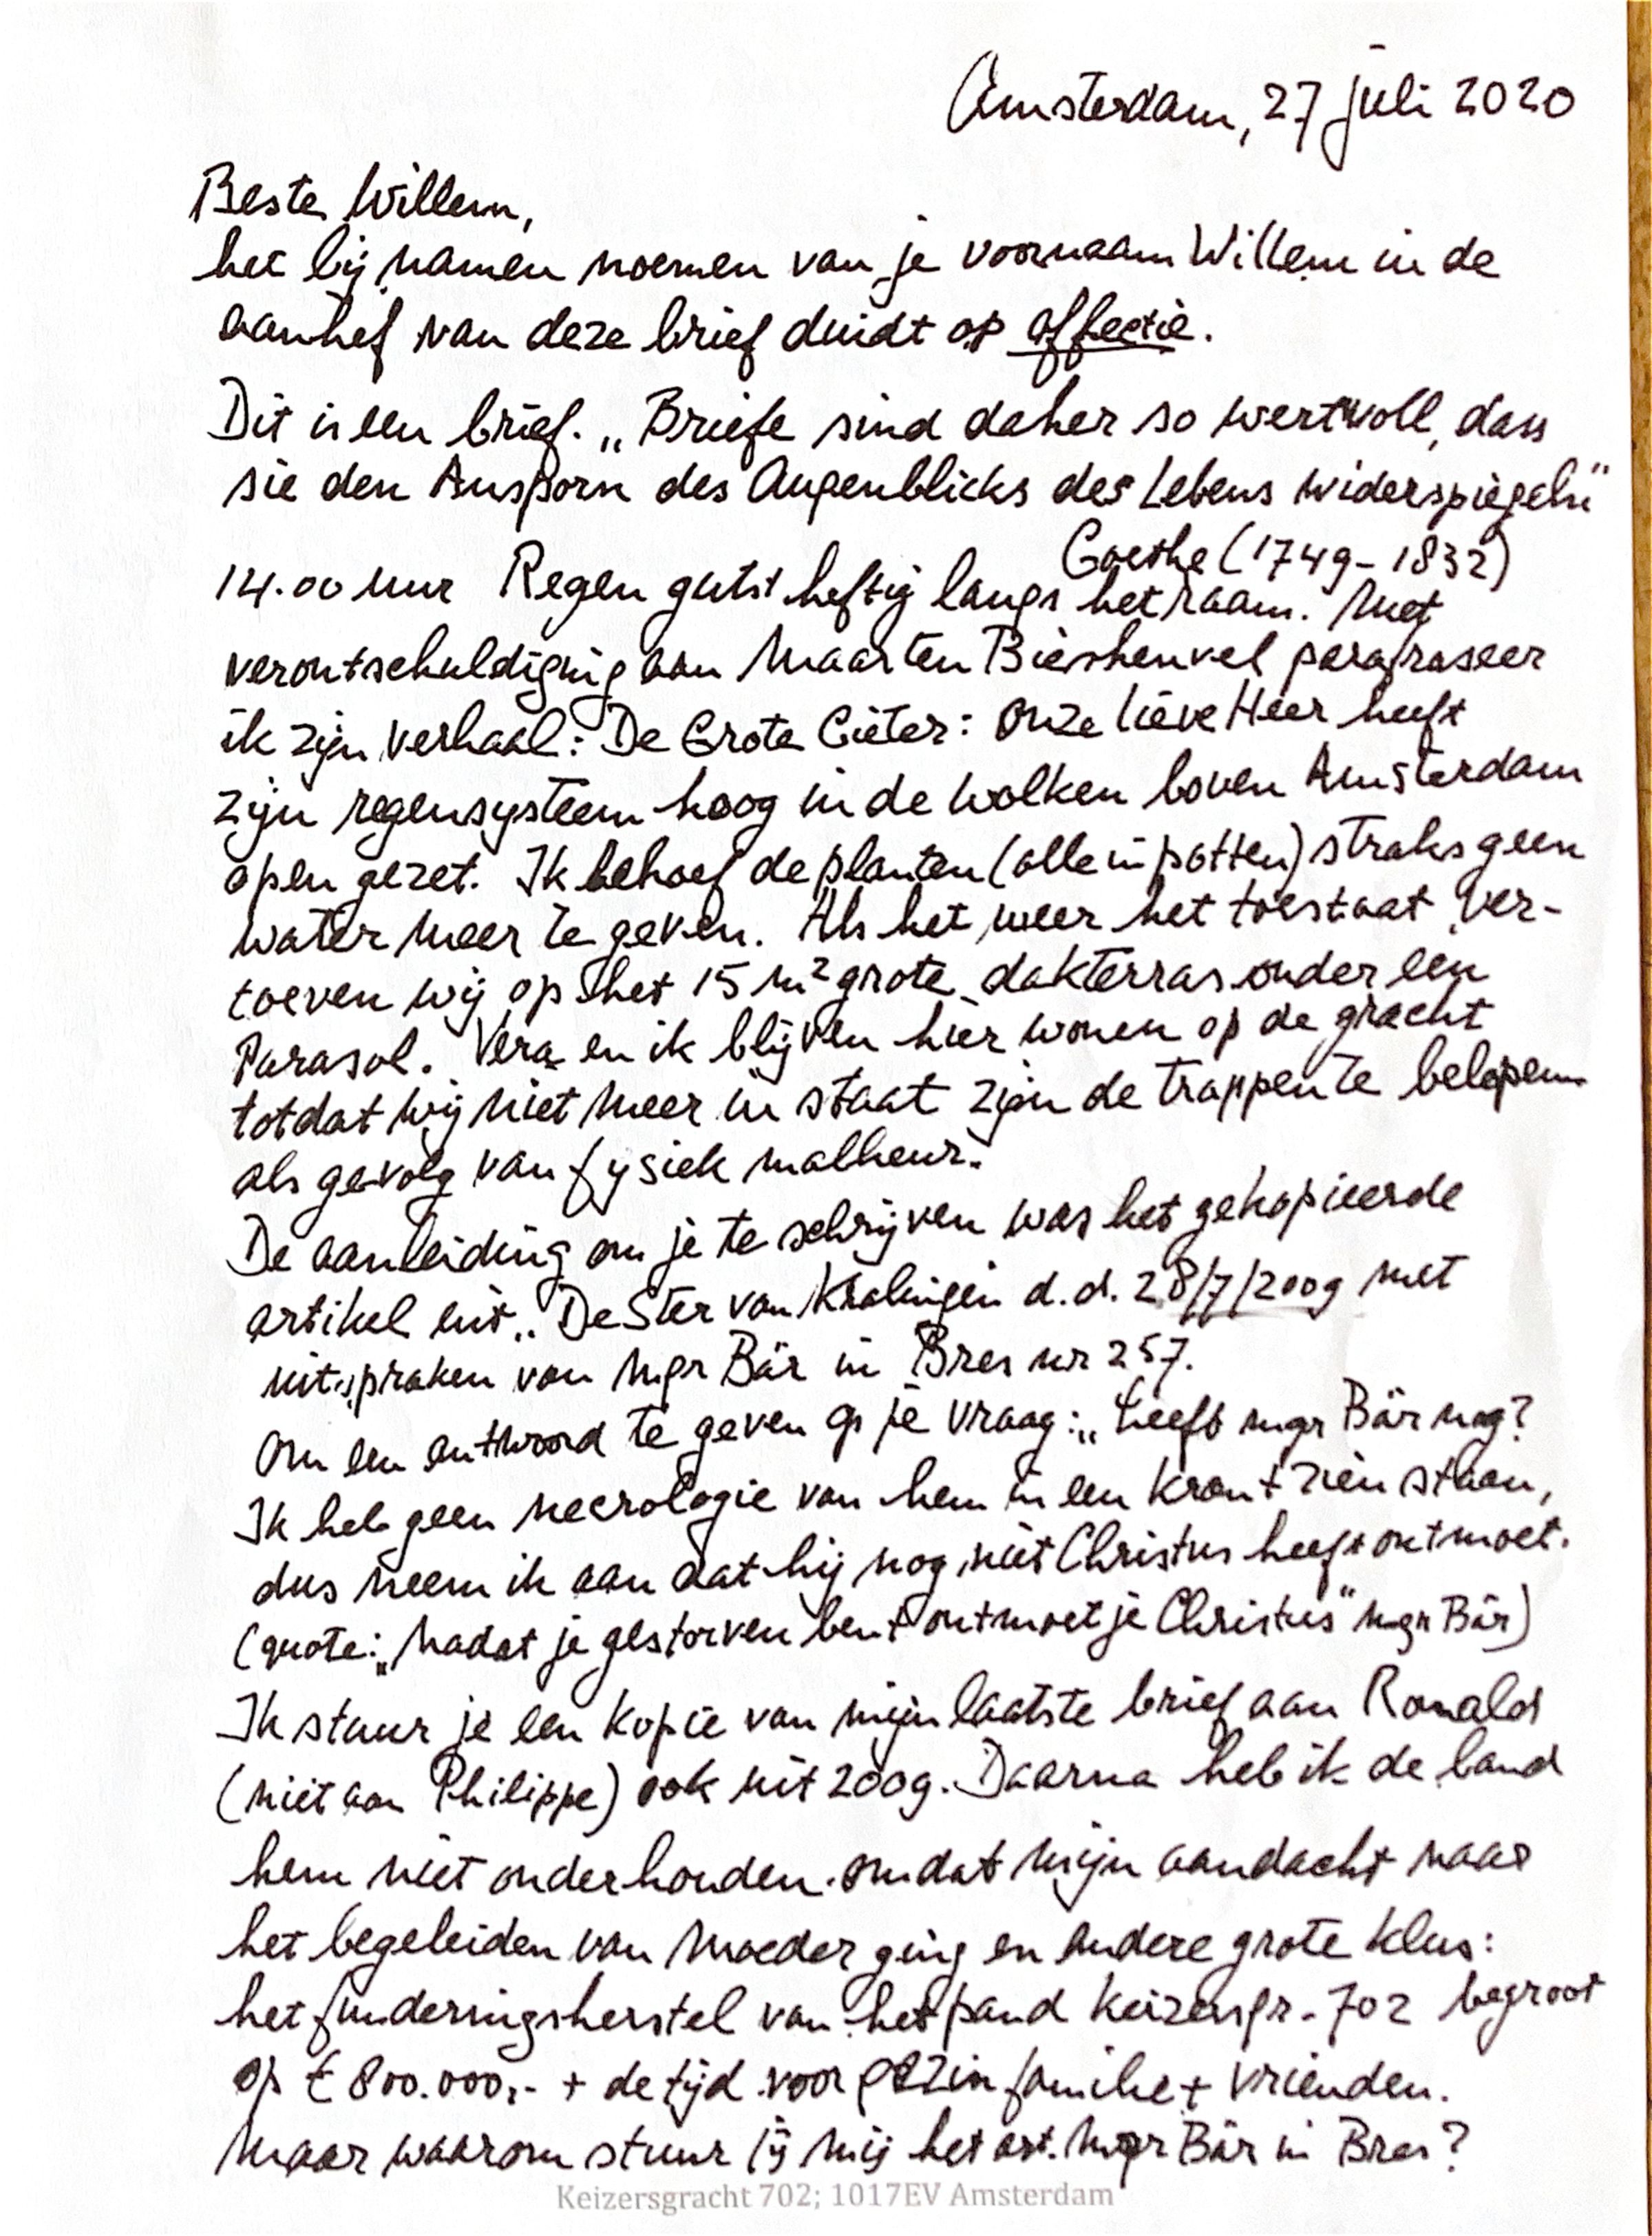 Amsterdam, 27 juli 2020
Beste Willem,
het bij namen noemen van je voornaam Willem in de
aanhef van deze brief duidt op affectie.
Dit is een brief. „Briefe sind daher so wertvoll, dass
sie den Ansporn des Augenblicks des Lebens widerspiegeln"
Goethe (1749-1832)
14.00 uur Regen gutst heftig langs het raam. Met
verontschuldiging aan Maarten Biesheuvel parafraseer
ik zijn verhaal: De Grote Gieter: Onze lieve Heer heeft
zijn regensysteem hoog in de wolken boven Amsterdam
open gezet. Ik behoef de planten (alle in potten) straks geen
water meer te geven. Als het weer het toestaat ver-
toeven wij op het 15 m² grote dakterras onder een
Parasol. Vera en ik blijven hier wonen op de gracht
totdat wij niet meer in staat zijn de trappen te belopen
als gevolg van fysiek malheur.
De aanleiding om je te schrijven was het gekopieerde
artikel uit „De Ster van Kralingen d.d. 28/7/2009 met
uitspraken van mgr Bär in Bres nr 257.
Om een antwoord te geven op je vraag: „Leeft mgr Bär nog?
Ik heb geen necrologie van hem in een krant zien staan,
dus neem ik aan dat hij nog niet Christus heeft ontmoet.
(quote: „Nadat je gestorven bent ontmoet je Christus" mgr Bär)
Ik stuur je een kopie van mijn laatste brief aan Ronald
(niet aan Philippe) ook uit 2009. Daarna heb ik de band
hem niet onderhouden. omdat mijn aandacht naar
het begeleiden van Moeder ging en andere grote klus:
het funderingsherstel van het pand Keizersgr. 702 begroot
op € 800.000,- + de tijd voor gezin familie + vrienden.
Maar waarom stuur jij mij het art. Mgr Bär in Bres?
Keizersgracht 702; 1017EV Amsterdam